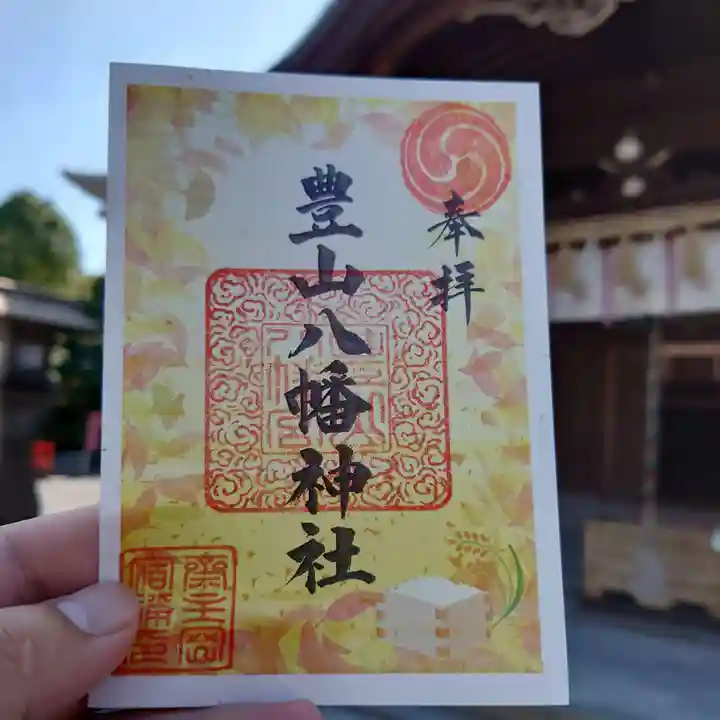 奉拝
豊山八幡神社